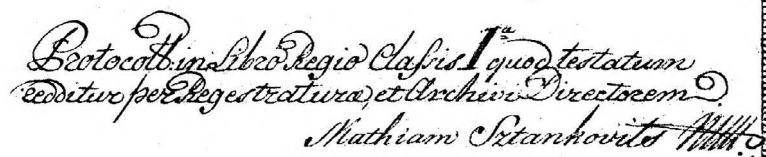 Protocoll: in Libro Regio Classis Iª quod testatum
redditur per Regestraturæ, et Archivi Directorem
Mathiam Sztankovits